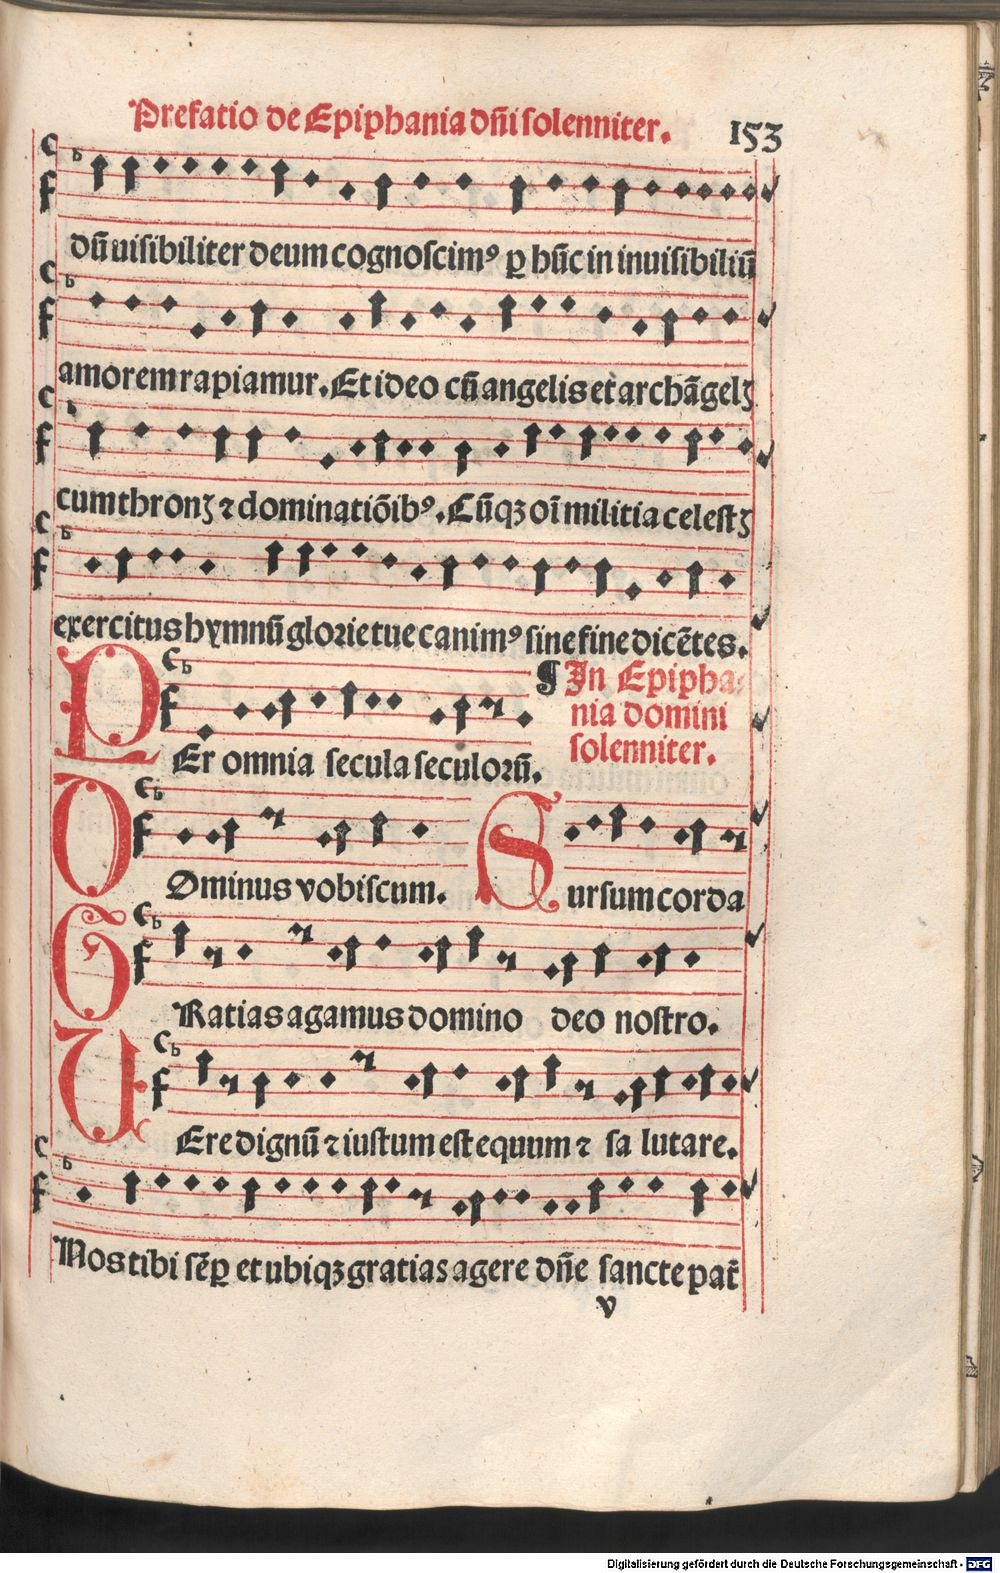 Prefatio de Epiphania dñi solenniter. 153
dū uisibiliter deum cognoscimꝰ ꝑ hūc in inuisibiliū
amorem rapiamur. Et ideo cū angelis et archāgelꝫ
cum thronꝫ ⁊ dominatiōibꝰ. Cūqꝫ oī militia celestꝫ
exercitus hymnū glorie tue canimꝰ sine fine dicētes.
¶ In Epipha-
nia domini
solenniter.
PEr omnia secula seculorū.
DOminus vobiscum. Sursum corda
GRatias agamus domino deo nostro.
UEre dignū ⁊ iustum est equum ⁊ sa lutare.
Nos tibi sēꝑ et ubiqꝫ gratias agere dñe sancte pat̄
v
Digitalisierung gefördert durch die Deutsche Forschungsgemeinschaft - DFG